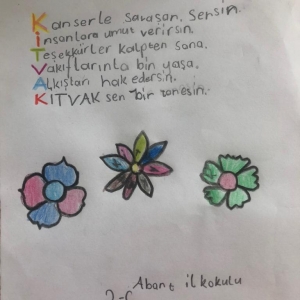 Kanserle savaşan, Sensin.
İnsanlara umut verirsin.
Teşekkürler kalpten sana,
Vakıflarınla bin yaşa,
Alkışları hak edersin.
KITVAK sen bir tanesin.
Abant ilkokulu
2-C